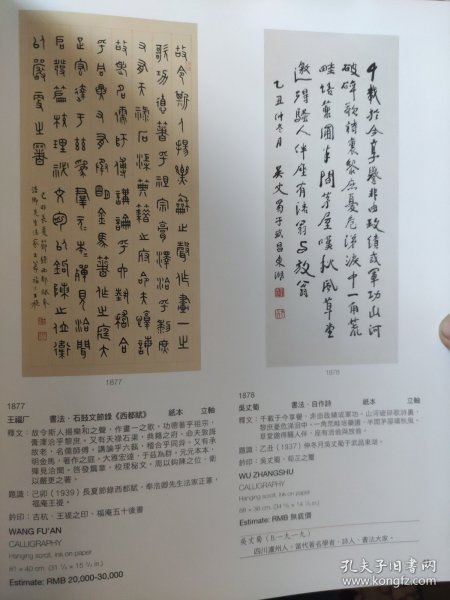 故令斯人揚樂和之聲作畫一之
歌功德著乎祖宗膏澤洽乎黎庶
又有天祿石渠典籍之府命夫諄誨
故老名儒師傅講論乎六藝稽合
乎同異又有承明金馬著作之庭大
雅宏達于茲為羣元元本本殫見洽聞
啟發篇章校理祕文周以鉤陳之位衛
以嚴更之署
千載於今享譽非由政績或軍功山河
破碎歌詩裏黎庶憂危涕淚中一角荒
畦培菊圃半間茅屋嘆秋風草堂
邀得騷人伴座有活翁与放翁
乙丑仲冬月 吳丈蜀于武昌東湖
1877
1878
1877
王福厂 書法·石鼓文節錄《西都賦》 紙本 立軸
釋文:故令斯人揚樂和之聲,作畫一之歌,功德著乎祖宗,
膏澤洽乎黎庶。又有天祿石渠,典籍之府,命夫敦誨
故老,名儒師傅,講論乎六藝,稽合乎同異。又有承
明金馬,著作之庭,大雅宏達,于茲為群,元元本本,
殫見洽聞,啓發篇章,校理秘文,周以鉤陳之位,衛
以嚴更之署。
題識:己卯(1939)長夏節錄西都賦,奉浩卿先生法家正篆,
福庵王禔。
鈐印:古杭、王禔之印、福庵五十後書
WANG FU'AN
CALLIGRAPHY
Hanging scroll, ink on paper
Estimate: RMB 20,000-30,000
1878
吳丈蜀 書法·自作詩 紙本 立軸
釋文:千載于今享譽,非由政績或軍功。山河破碎歌詩裏,
黎庶憂危涕淚中。一角荒畦培菊圃,半間茅屋嘆秋風。
草堂邀得騷人伴,座有活翁與放翁。
乙丑(1937)仲冬月吳丈蜀于武昌東湖。
鈐印:吳丈蜀、荀芷之璽
WU ZHANGSHU
CALLIGRAPHY
Hanging scroll, ink on paper
Estimate: RMB 無底價
吳丈蜀(B.一九一九)
四川瀘州人。當代著名學者、詩人、書法大家。
孔夫子旧书网